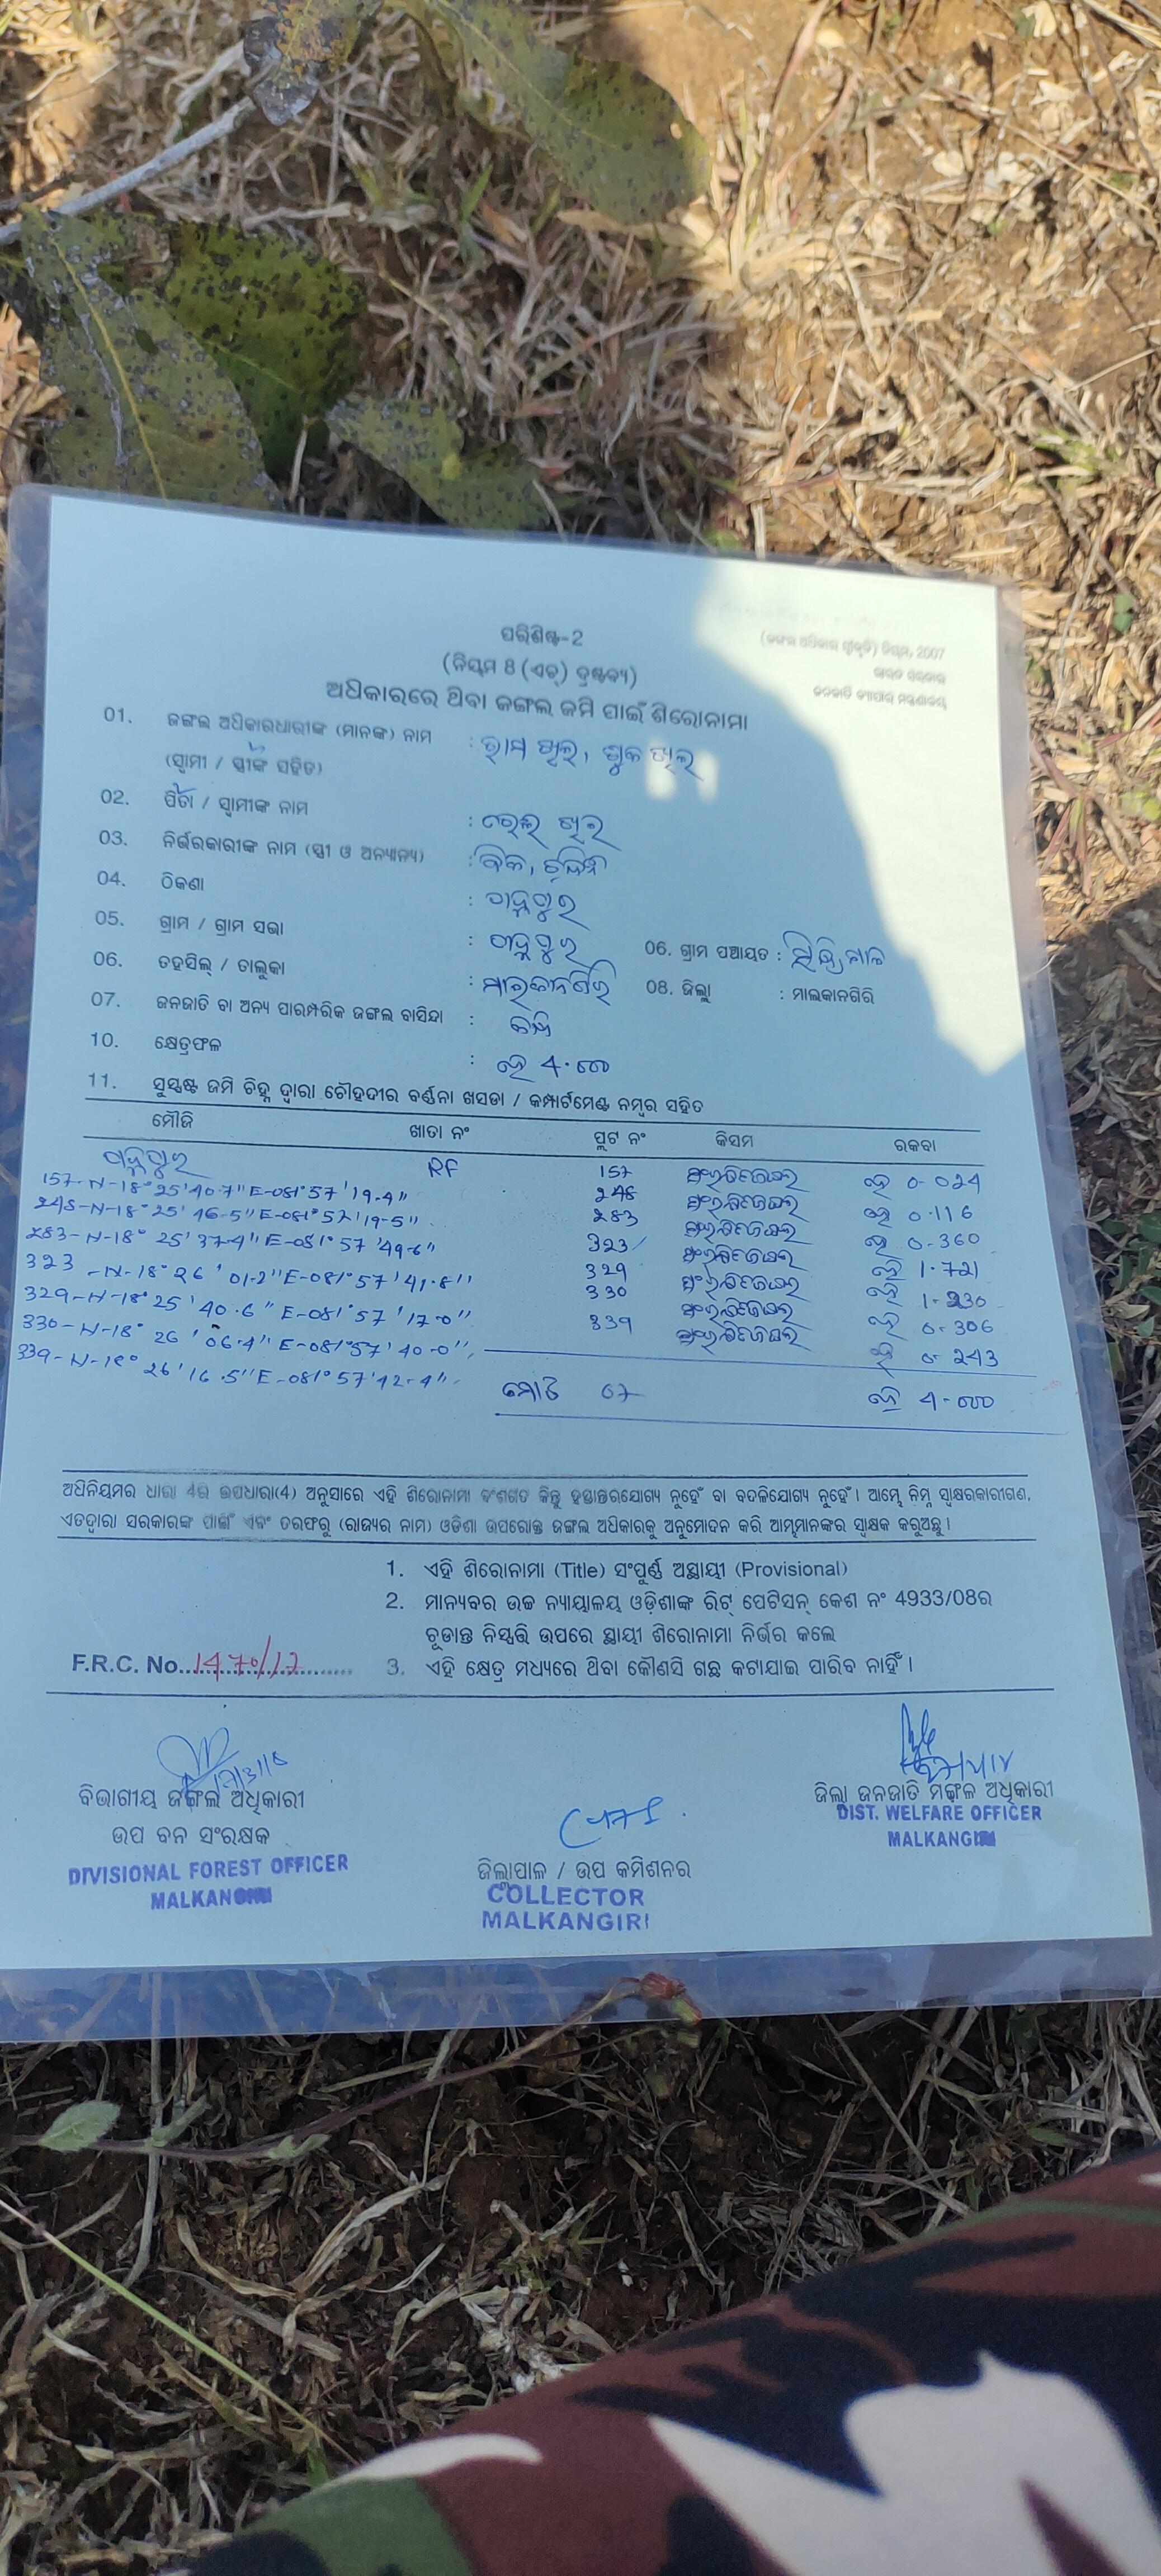 ପରିଶିଷ୍ଟ-2
(ନିୟମ 8 (ଏଚ୍) ଦ୍ରଷ୍ଟବ୍ୟ)
(ଜଙ୍ଗଲ ଅଧିକାର ସ୍ୱୀକୃତି) ନିୟମ, 2007
ଭାରତ ସରକାର
ଜନଜାତି ବ୍ୟାପାର ମନ୍ତ୍ରଣାଳୟ
ଅଧିକାରରେ ଥିବା ଜଙ୍ଗଲ ଜମି ପାଇଁ ଶିରୋନାମା
01. ଜଙ୍ଗଲ ଅଧିକାରଧାରୀଙ୍କ (ମାନଙ୍କ) ନାମ :
(ସ୍ୱାମୀ / ସ୍ତ୍ରୀଙ୍କ ସହିତ)
02. ପିତା / ସ୍ୱାମୀଙ୍କ ନାମ :
03. ନିର୍ଭରକାରୀଙ୍କ ନାମ (ସ୍ତ୍ରୀ ଓ ଅନ୍ୟାନ୍ୟ) :
04. ଠିକଣା :
05. ଗ୍ରାମ / ଗ୍ରାମ ସଭା : 06. ଗ୍ରାମ ପଞ୍ଚାୟତ :
06. ତହସିଲ୍ / ତାଲୁକା : ମାଲକାନଗିରି 08. ଜିଲ୍ଲା : ମାଲକାନଗିରି
07. ଜନଜାତି ବା ଅନ୍ୟ ପାରମ୍ପରିକ ଜଙ୍ଗଲ ବାସିନ୍ଦା :
10. କ୍ଷେତ୍ରଫଳ : ହେ 4.00
11. ସୁସ୍ପଷ୍ଟ ଜମି ଚିହ୍ନ ଦ୍ୱାରା ଚୌହଦୀର ବର୍ଣ୍ଣନା ଖସଡା / କମ୍ପାର୍ଟମେଣ୍ଟ ନମ୍ବର ସହିତ
ମୌଜି ଖାତା ନଂ ପ୍ଲଟ ନଂ କିସମ ରକବା
RF 157 ହେ 0.024
157-N-18° 25' 40.7" E-081° 57' 19.4" 248 ହେ 0.116
248-N-18° 25' 46.5" E-081° 57' 19.5" 283 ହେ 0.360
283-N-18° 25' 37.4" E-081° 57' 49.6" 323 ହେ 1.721
323-N-18° 26' 01.2" E-081° 57' 41.8" 329 ହେ 1.230
329-N-18° 25' 40.6" E-081° 57' 17.0" 330 ହେ 0.306
330-N-18° 26' 06.4" E-081° 57' 40.0" 339 ହେ 0.243
339-N-18° 26' 16.5" E-081° 57' 42.4"
ମୋଟ 07 ହେ 4.00
ଅଧିନିୟମର ଧାରା 4ର ଉପଧାରା(4) ଅନୁସାରେ ଏହି ଶିରୋନାମା ବଂଶଗତ କିନ୍ତୁ ହସ୍ତାନ୍ତରଯୋଗ୍ୟ ନୁହେଁ ବା ବଦଳିଯୋଗ୍ୟ ନୁହେଁ। ଆମ୍ଭେ ନିମ୍ନ ସ୍ୱାକ୍ଷରକାରୀଗଣ,
ଏତଦ୍ୱାରା ସରକାରଙ୍କ ପାଇଁ ଏବଂ ତରଫରୁ (ରାଜ୍ୟର ନାମ) ଓଡିଶା ଉପରୋକ୍ତ ଜଙ୍ଗଲ ଅଧିକାରକୁ ଅନୁମୋଦନ କରି ଆମ୍ଭମାନଙ୍କର ସ୍ୱାକ୍ଷକ କରୁଅଛୁ।
1. ଏହି ଶିରୋନାମା (Title) ସଂପୂର୍ଣ୍ଣ ଅସ୍ଥାୟୀ (Provisional)
2. ମାନ୍ୟବର ଉଚ୍ଚ ନ୍ୟାୟାଳୟ ଓଡ଼ିଶାଙ୍କ ରିଟ୍ ପେଟିସନ୍ କେଶ ନଂ 4933/08ର
ଚୂଡାନ୍ତ ନିସ୍ପତ୍ତି ଉପରେ ସ୍ଥାୟୀ ଶିରୋନାମା ନିର୍ଭର କଲେ
F.R.C. No. 1470/17 3. ଏହି କ୍ଷେତ୍ର ମଧ୍ୟରେ ଥିବା କୌଣସି ଗଛ କଟାଯାଇ ପାରିବ ନାହିଁ।
ବିଭାଗୀୟ ଜଙ୍ଗଲ ଅଧିକାରୀ
ଉପ ବନ ସଂରକ୍ଷକ
DIVISIONAL FOREST OFFICER
MALKANGIRI
ଜିଲ୍ଲାପାଳ / ଉପ କମିଶନର
COLLECTOR
MALKANGIRI
ଜିଲା ଜନଜାତି ମଙ୍ଗଳ ଅଧିକାରୀ
DIST. WELFARE OFFICER
MALKANGIRI